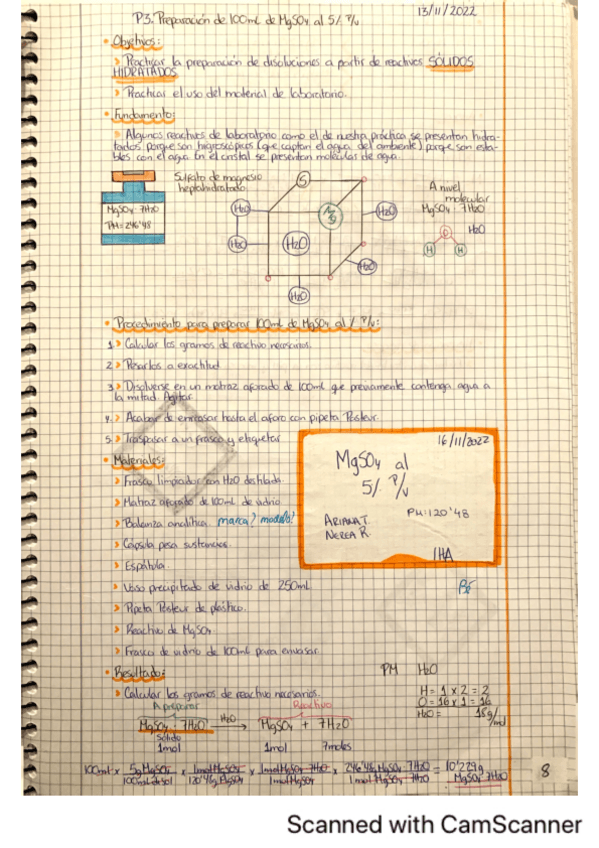 13/11/2022
P3: Preparación de 100mL de MgSO4 al 5% P/V
• Objetivos:
> Practicar la preparación de disoluciones a partir de reactivos SÓLIDOS
HIDRATADOS.
> Practicar el uso del material de laboratorio.
• Fundamento:
> Algunos reactivos de laboratorio como el de nuestra práctica se presentan hidra-
tados porque son higroscópicos (que captan el agua del ambiente) porqe son esta-
bles con el agua. En el cristal se presentan moléculas de agua.
Sulfato de magnesio
heptahidratado
MgSO4 · 7H2O
PM = 246'48
S
Mg
H2O
H2O
H2O
H2O
H2O
H2O
A nivel
molecular
MgSO4 · 7H2O
H2O
O
H H
• Procedimiento para preparar 100mL de MgSO4 al / P/V:
1.> Calcular los gramos de reactivo necesarios.
2.> Pesarlos a exactitud.
3.> Disolverse en un matraz aforado de 100mL que previamente contenga agua a
la mitad. Agitar.
4.> Acabar de enrasar hasta el aforo con pipeta Pasteur.
5.> Traspasar a un frasco y etiquetar
16/11/2022
MgSO4 al
5% P/V
PM:120'48
ARIANA T.
NEREA R.
1HA
• Materiales:
> Frasco limpiador con H2O destilada.
> Matraz aforado de 100mL de vidrio
> Balanza analítica. marca? modelo?
> Cápsula pesa sustancias.
> Espátula.
> Vaso precipitado de vidrio de 250mL
> Pipeta Pasteur de plástico.
> Reactivo de MgSO4.
> Frasco de vidrio de 100mL para envasar.
Bé
• Resultado:
> Calcular los gramos de reactivo necesarios.
PM H2O
H = 1 x 2 = 2
O = 16 x 1 = 16
H2O = 18g/mol
A preparar
Reactivo
MgSO4 · 7H2O H2O → MgSO4 + 7H2O
Sólido
1mol 1mol 7moles
100mL x 5g MgSO4 / 100mL disol x 1mol MgSO4 / 120'4g MgSO4 x 1mol MgSO4 · 7H2O / 1mol MgSO4 x 246'4g MgSO4 · 7H2O / 1mol MgSO4 · 7H2O = 10'229g MgSO4 · 7H2O
8
Scanned with CamScanner